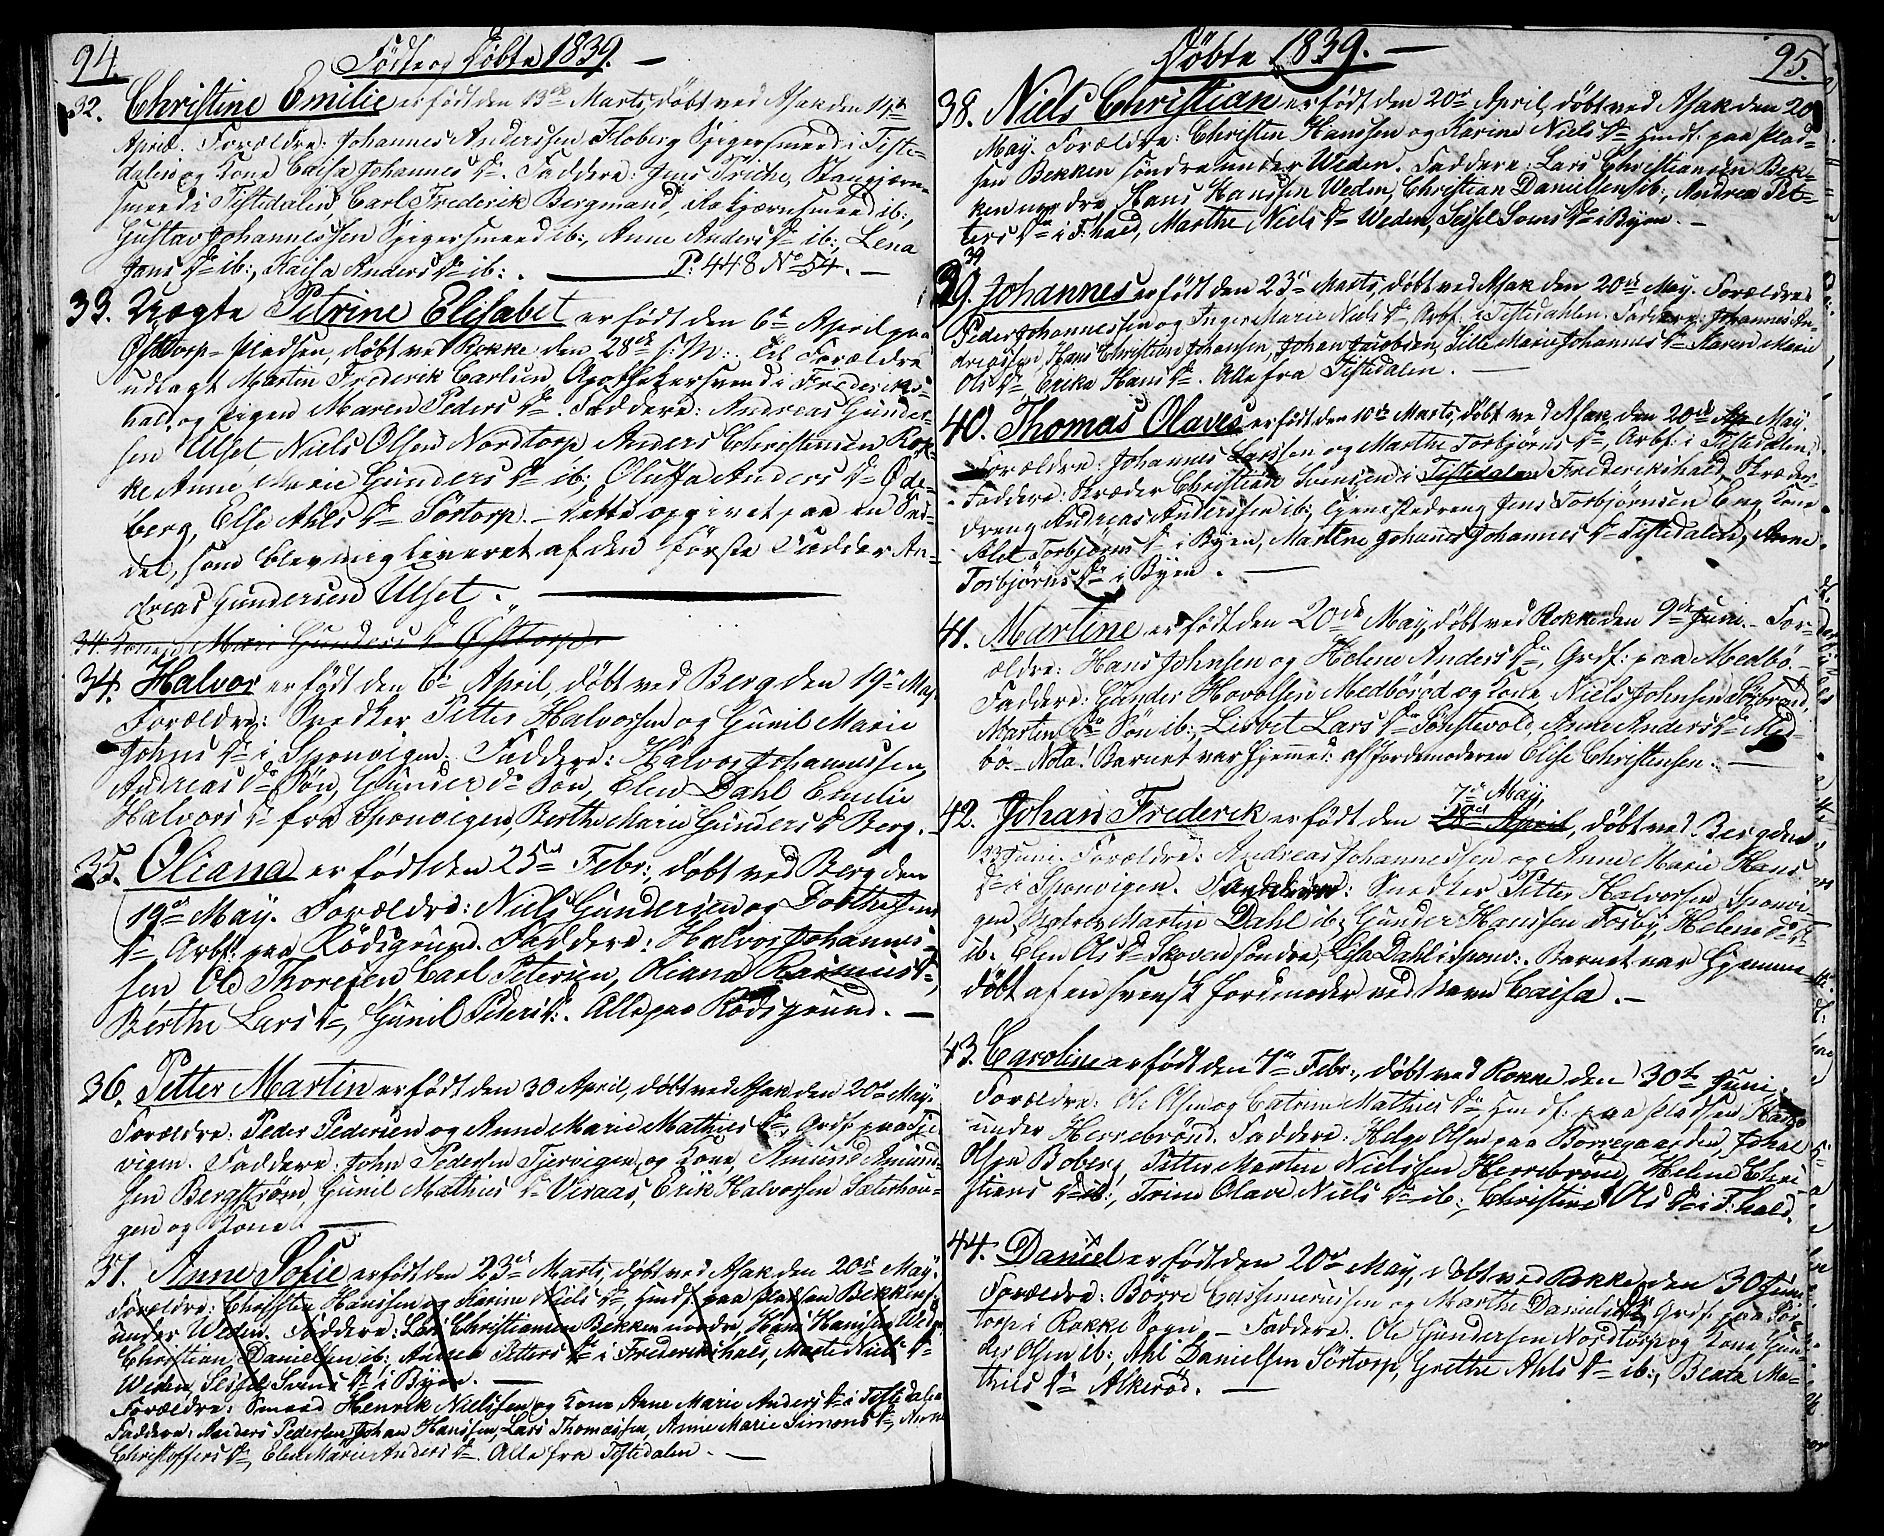 94.
Fødte og Døbte 1839.
32. Christine Emilie er født den 13de Marts, døbt ved Asak den 14de
April. Forældre: Johannes Anderssen Floberg Spigersmeed i Tiste-
dalen og Kone Caisa Johannes Dr. Faddere: Jens Friche, Stangjern-
smed i Tistedalen, Carl Frederik Bergmand, Rakjernsmeed ib:,
Gustav Johannessen Spigersmeed ib:, Anne Anders Dr ib:, Lena
Jans Dr ib:, Kaisa Anders Dr ib:. P: 448 No 54.
33. Uægte Petrine Elisabet er født den 6te April paa
Østtorp-Pladsen, døbt ved Rokke den 28de s: M:. Til Forældre
udlagt Martin Frederik Carlsen, Apothekersvend i Frederiks-
hald, og Pigen Maren Peders Dr. Faddere: Andreas Gunder-
sen Ulset, Niels Olsen Nordtorp, Anders Christensen Rok-
ke, Anne Marie Gunders Dr ib:, Oluffa Anders Dr Øde-
berg, Else Ahls Dr Sørtorp. – Dette opgivet paa en Sed-
del, som blev mig leveret af den første Fadder An-
dreas Gundersen Ulset.
34. Konen Mari Gunders Dr Østtorp
34. Halvor er født den 6te April, døbt ved Berg den 19de May.
Forældre: Snedker Petter Halvorsen og Gunil Marie
Johns Dr i Sponvigen. Faddere: Halvor Johannessen,
Andreas Do Søn, Gunder do Søn, Elen Dahl, Emelie
Halvors Dr fra Sponvigen, Berthe Marie Gunders Dr Berg.
35. Oliana er født den 25de Febr:, døbt ved Berg den
19de May. Forældre: Niels Gundersen og Dorthe Jens
Dr Arbf: paa Rødsgrund. Faddere: Halvor Johannes-
sen, Ole Thoresen, Carl Petersen, Oliana Rasmus Dr,
Berthe Lars Dr, Gunil Peders Dr. Alle paa Rødsgrund.
36. Petter Martin er født den 30 April, døbt ved Asak den 20de May.
Forældre: Peder Pedersen og Anne Marie Mathies Dr, Grdf: paa Tjer-
vigen. Faddere: John Pedersen Tjervigen og Kone, Amund Amund-
sen Bergstrøm, Gunil Mathies Dr Viraas, Erik Halvorsen Sæterhau-
gen og Kone.
37. Anne Sofie er født den 23de Marts, døbt ved Asak den 20de May.
Forældre: Christen Hanssen og Karine Niels Dr, Hmdf: paa Pladsen Bekken s:
under Weden. Faddere: Lars Christiansen Bekken nordre, Hans Hanssen Weden,
Christian Danielsen ib:, Andrea Petters Dr i Frederikshald, Marte Niels Dr
Weden, Seisel Svens Dr i Byen.
Forældre: Smeed Henrik Nielssen og Kone Anne Marie Anders Dr i Tistedalen.
Faddere: Anders Pedersen, Johan Hanssen, Lars Thomassen, Anne Marie Simons Dr, Anne
Christoffers Dr, Elen Marie Anders Dr. Alle fra Tistedalen.
Døbte 1839.
95.
38. Niels Christian er født den 20de April, døbt ved Asak den 20
May. Forældre: Christen Hanssen og Karine Niels Dr Hmdf: paa Plad-
sen Bekken søndre under Weden. Faddere: Lars Christiansen Bek-
ken nordre, Hans Hanssen Weden, Christian Danielsen ib:, Andrea Pet-
ters Dr i F:hald, Marthe Niels Dr Weden, Seisel Svens Dr i Byen.
39
39. Johannes er født den 23de Marts, døbt ved Asak den 20de May. Forældre:
Peder Johannessen og Inger Marie Niels Dr, Arbf: i Tistedahlen. Faddere: Johannes An-
dreassen, Hans Christian Johansen, Johan Jacobsen, Lille Marie Johannes Dr, Karen Marie
Ols Dr, Erika Hans Dr. Alle fra Tistedalen.
40. Thomas Olaves er født den 10de Marts, døbt ved Asak den 20de Ap May.
Forældre: Johannes Larssen og Marthe Torbjørns Dr, Arbf: i Tistedalen.
Faddere: Skræder Christian Svensen i Tistedalen Frederikshald, Skræder-
dreng Andreas Anderssen ib:, Tjenestedreng Jens Torbjørnsen Eng, Kone
Alet Torbjørns Dr i Byen, Martine Johanne Johannes Dr Tistedalen, Anne
Torbjørns Dr i Byen.
41. Martine er født den 20de May, døbt ved Rokke den 9de Juni. For-
ældre: Hans Johnsen og Helene Anders Dr, Grdf: paa Medbø.
Faddere: Gunder Hovolsen Medbørød og Kone, Niels Johnsen Sørbrød,
Martin Do Søn ib:, Lisbet Lars Dr Tønstevold, Anne Anders Dr Med-
bø. Nota! Barnet var hjemmed: af Jordemoderen Elise Christensen.
7de May,
42. Johan Frederik er født den 28de April, døbt ved Berg den
23 Juni. Forældre: Andreas Johannessen og Anne Marie Hans
Dr i Sponvigen. Faddere: Snedker Petter Halvorsen Sponvi-
gen, Matros Martin Dahl ib:, Gunder Hanssen Torby, Helene do Dr
ib:, Elen Ols Dr Skoven søndre, Lisa Dahl i Sponv:. Barnet var hjemme-
døbt af en svensk Jordmoder ved Navn Caisa.
43. Caroline er født den 7de Febr:, døbt ved Rokke den 30te Juni.
Forældre: Ole Olsen og Catrine Mathies Dr, Hmdf: paa Pladsen
under Herrebrønd. Faddere: Helge Olsen paa Borregaarden, Johan
Olsen Boberg, Petter Martin Nielssen Herrebrønd, Helene Chri-
stians Dr ib:, Trine Olave Niels Dr ib:, Christine Ols Dr i F:hald.
44. Daniel er født den 20de May, døbt ved Rokke den 30 Juni.
Forældre: Børre Cassemirussen og Marthe Daniels Dr Grdf: paa Sør-
torp i Rokke Sogn. – Faddere: Ole Gundersen Nordtorp og Kone, Gun-
der Olsen ib:, Ahl Danielsen Sørtorp, Grethe Ahls Dr ib:, Beata Ma-
thies Dr Alkerød.